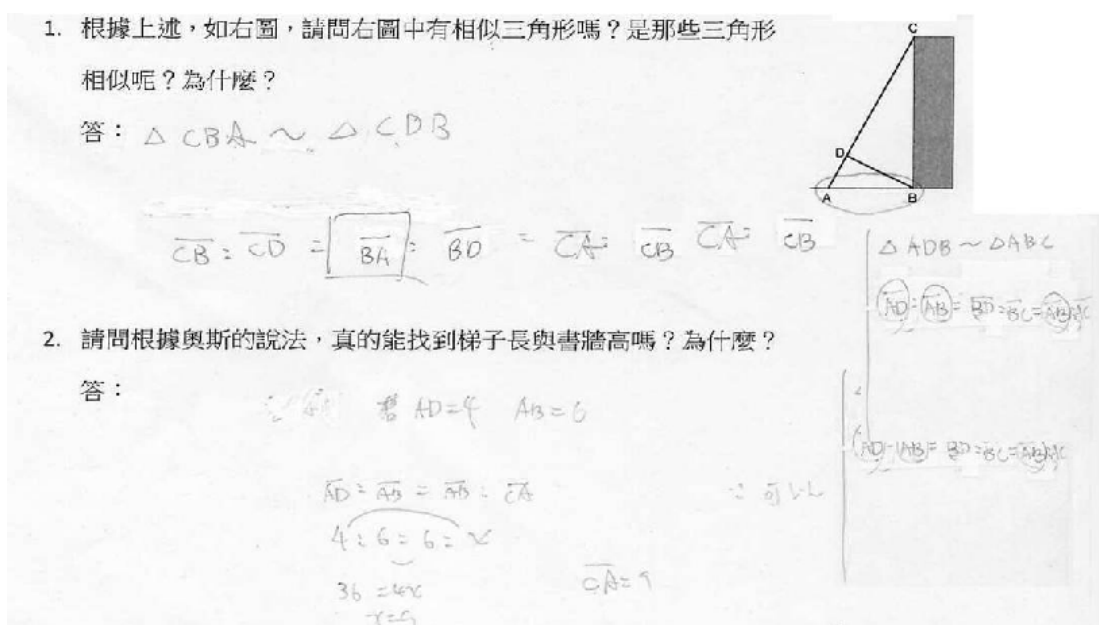 1. 根據上述，如右圖，請問右圖中有相似三角形嗎？是那些三角形
相似呢？為什麼？
答：△CBA ~ △CDB
C
D
A
B
CB : CD = BA : BD = CA : CB CA : CB
△ADB ~ △ABC
AD : AB = BD : BC = AB : AC
2. 請問根據奧斯的說法，真的能找到梯子長與書牆高嗎？為什麼？
答：
若 AD=4 AB=6
AD : AB = AB : CA
∵ 可以
4 : 6 = 6 : x
36 = 4x
CA = 9
x = 9
AD : AB = BD : BC = AB : AC